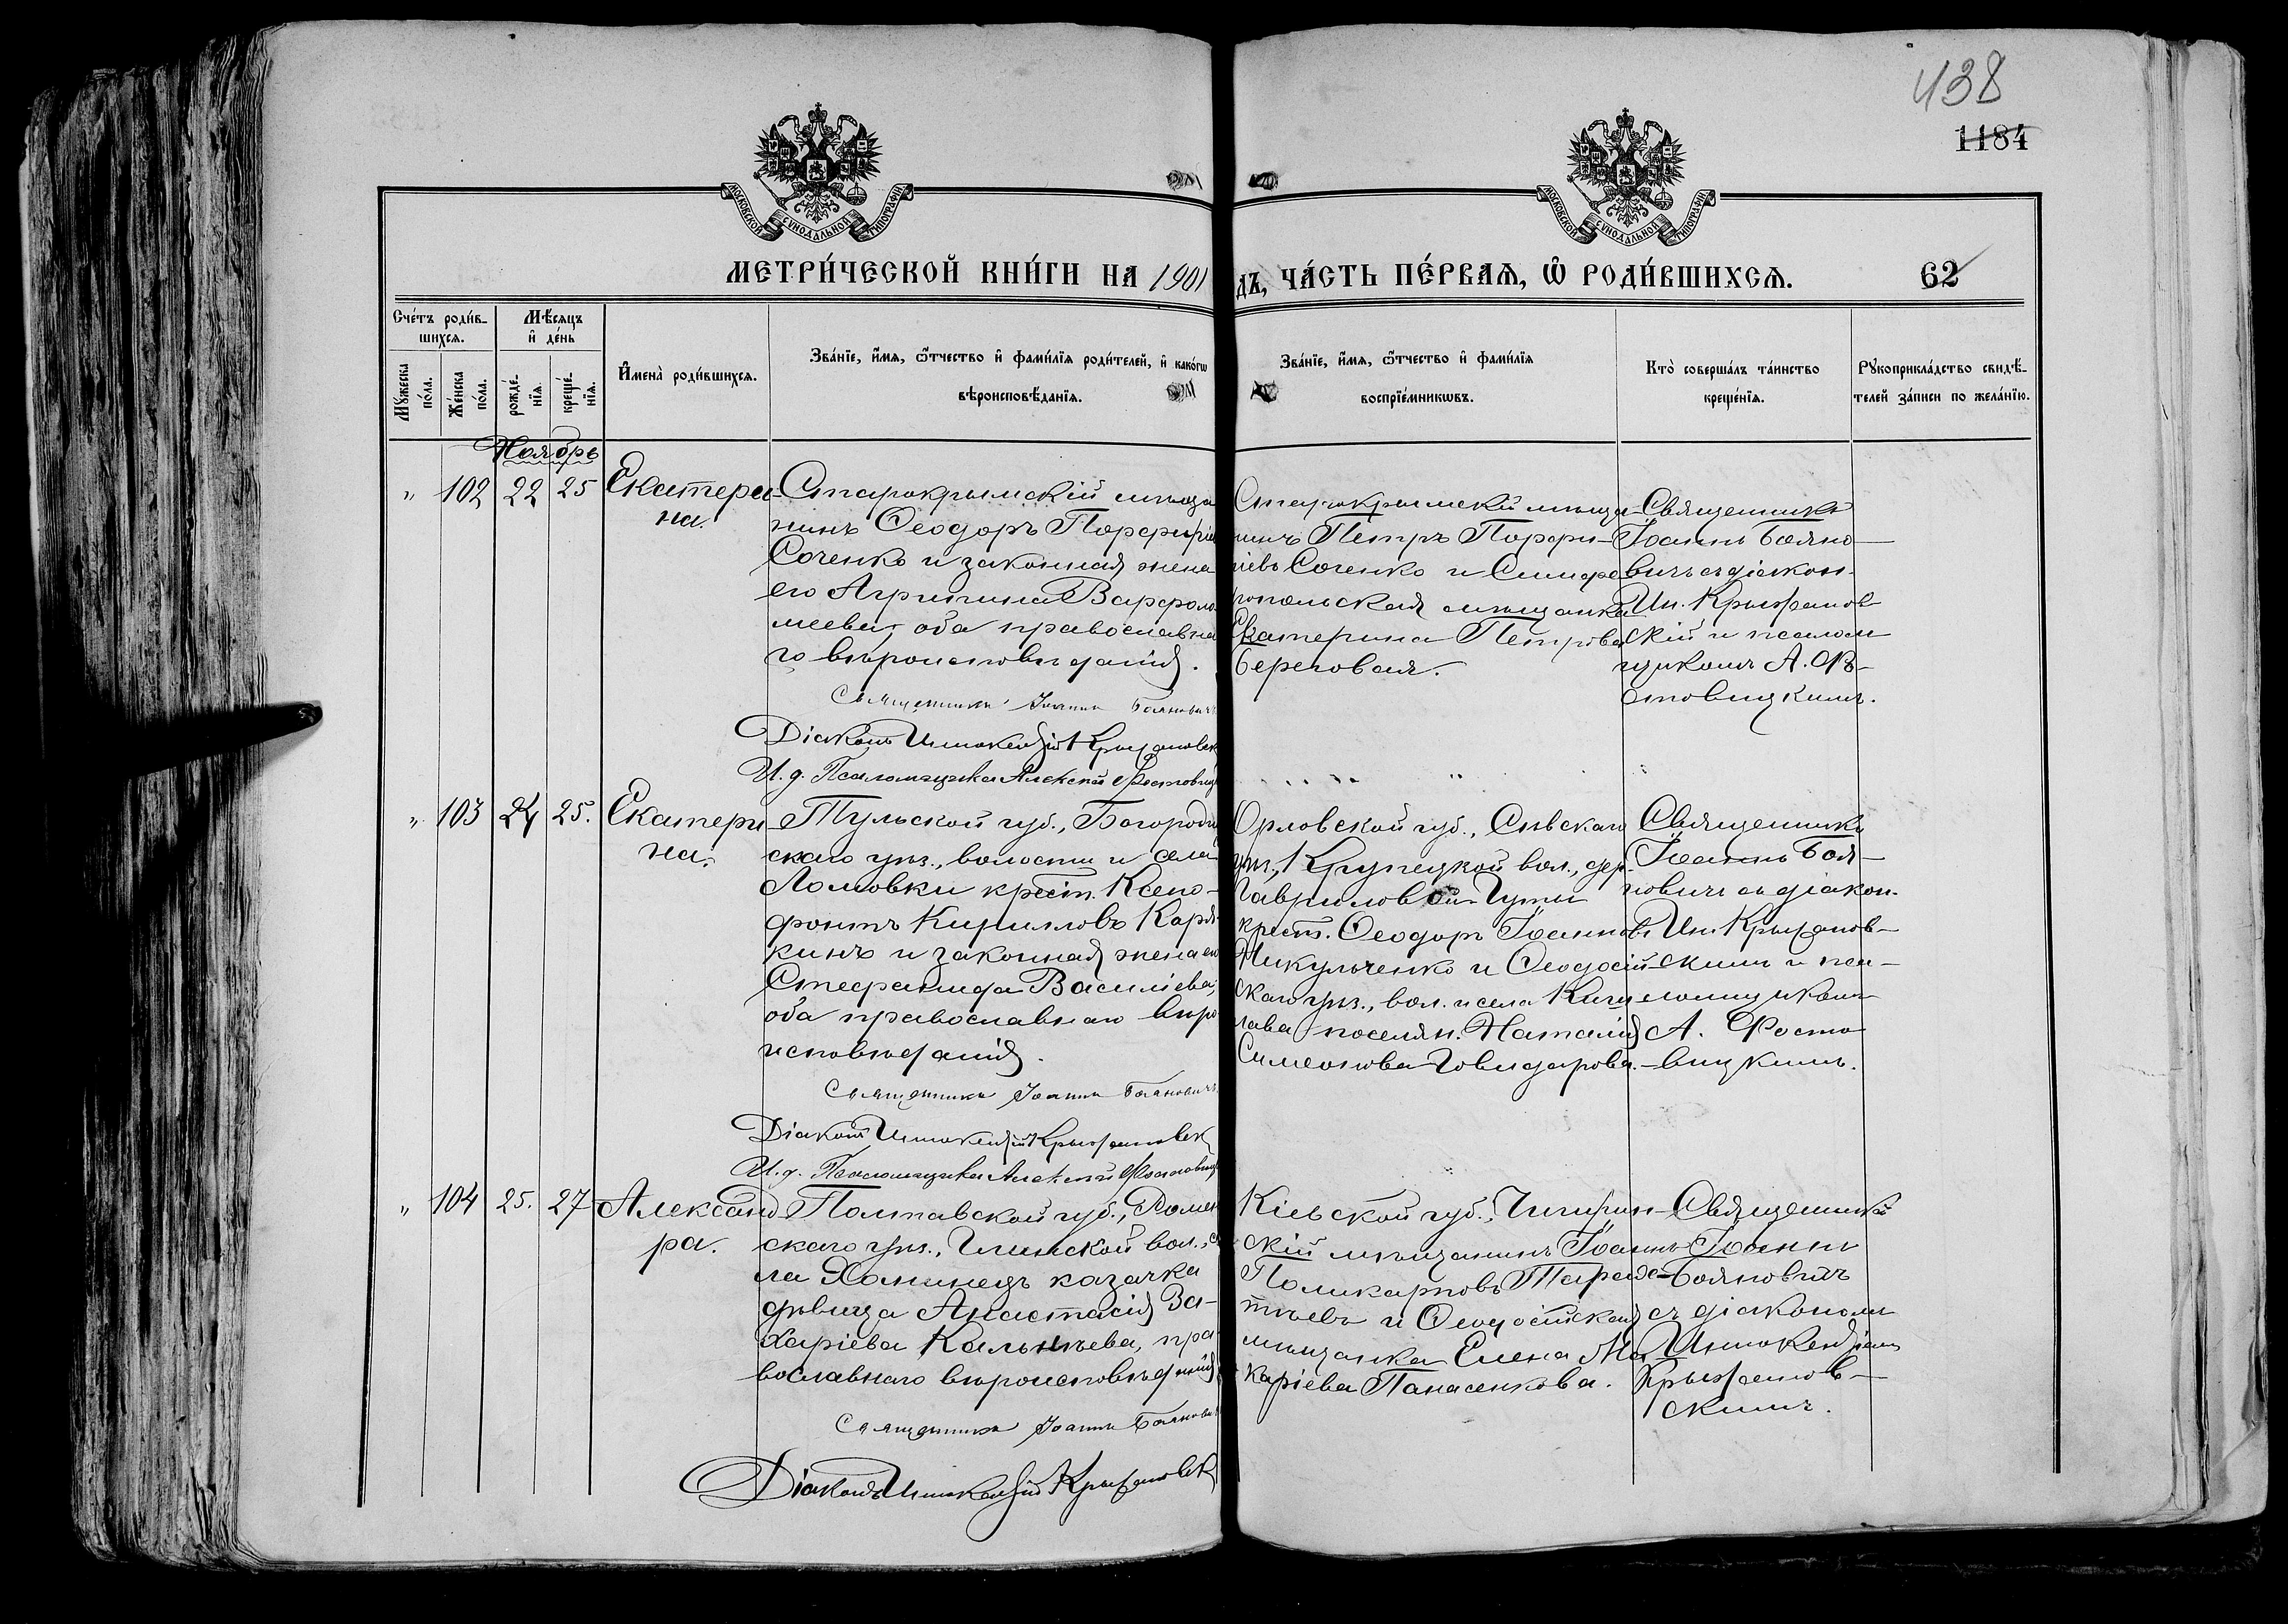 438
1184
МОСКОВСКОЙ СѴНОДАЛЬНОЙ ТИПОГРАФІИ
МОСКОВСКОЙ СѴНОДАЛЬНОЙ ТИПОГРАФІИ
МЕТРИ́ЧЕСКОЙ КНИ́ГИ НА 1901
ДЪ, ЧА́СТЬ ПЕ́РВАЯ, Ѿ РОДИ́ВШИХСЯ.
62
Сче́тъ роди́в-
шихся.
Мѣ́сяцъ
и҆ де́нь
Мꙋ́жеска
по́ла.
Же́нска
по́ла.
рожде́-
нїя.
креще́-
нїя.
И҆мена̀ роди́вшихся.
Зва́нїе, и҆́мя, ѻ҆́тчество и҆ фами́лїя роди́телей, и҆ како́гѡ
вѣроисповѣ́данїя.
Зва́нїе, и҆́мя, ѻ҆́тчество и҆ фами́лїя
воспрїе́мникѡвъ.
Кто̀ соверша́лъ та́инство
креще́нїя.
Рꙋкоприкла́дство свидѣ́-
телей за́писи по жела́нїю.
Ноябрь
" 102 22 25 Екатери-
на.
Старокрымскій мѣща
нинъ Ѳеодоръ Порфиріе
Соченко и законная жена
его Агрипина Варфоло
меева, оба православна
го вѣроисповѣданія.
Священникъ Іоаннъ Бояновичъ
Діаконъ Иннокентій Крыжановск
И. д. Псаломщика Алексѣй Фостовиц
Старокрымскій мѣща
нинъ Петръ Порфи-
ріевъ Соченко и Симфе
ропольская мѣщанка
Екатерина Петрова
Береговая.
Священникъ
Іоаннъ Бояно-
вичъ съ діакон.
Ин. Крыжанов
скій и псалом
щикомъ А. Фо-
стовицкимъ.
" 103 24 25. Екатери
на.
Тульской губ., Богороди
скаго уѣз., волости и села
Ломовки крест. Ксено-
фонтъ Кирилловъ Каря
кинъ и законная жена его
Стефанида Василіева,
оба православнаго вѣро
исповѣданія.
Священникъ Іоаннъ Бояновичъ
Діаконъ Иннокентій Крыжановск
И. д. Псаломщика Алексѣй Фостовиц
Орловской губ., Сѣвскаго
уѣз., Крупецкой вол., дер.
Гавриловой Гуты
крест. Ѳеодоръ Іоанновъ
Никульченко и Ѳеодосій-
скаго уѣз., вол. и села
лава поселян. Наталія
Симеонова Говидарова.
Священникъ
Іоаннъ Боя-
новичъ съ діакон.
Ин. Крыжанов-
скимъ и пса-
ломщикомъ
А. Фосто-
вицкимъ.
" 104 25. 27 Александ
ра.
Полтавской губ., Ромен
скаго уѣз., Глинской вол., с
ла Хоминецъ казачка
дѣвица Анастасія За-
харіева Кальнѣева, пра
вославнаго вѣроисповѣданія
Священникъ Іоаннъ Бояновичъ
Діаконъ Иннокентій Крыжановск
Кіевской губ., Чигирин-
скій мѣщанинъ Іоаннъ
Поликарповъ
и Ѳеодосійская
мѣщанка Елена Ма
каріева Панасенкова.
Священникъ
Іоаннъ
Бояновичъ
съ діакономъ
Иннокентіемъ
Крыжанов-
скимъ.